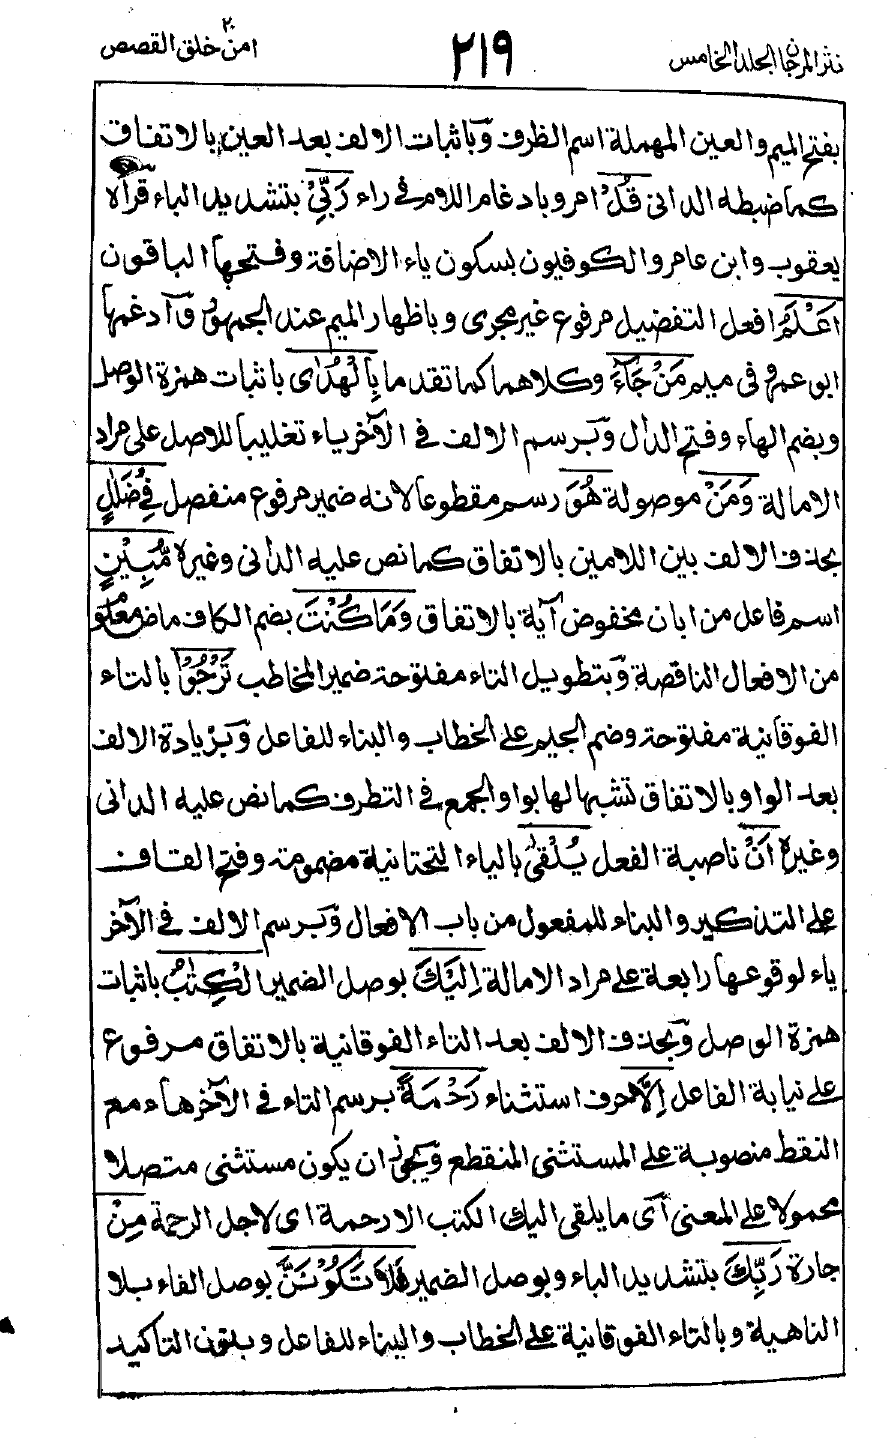 نثر المرجان الجلد الخامس
٢١٩
امن خلق ٢٠ القصص
بفتح الميم والعين المهملة اسم الظرف وَبا ثبات الالف بعد العين بالاتفاق
كما ضبطه الدانى قُلْ امر وبادغام اللام فى راء رَبِّىْ بتشديد الباء قرأه
يعقوب وابن عامر والكوفيون بسكون ياء الاضافة وفتحها الباقون
اَعْلَمُ افعل التفضيل مرفوع غير مجرى وباظهار الميم عند الجمهور وَادغمها
ابو عمرو فى ميم مَنْ جَآءَ وكلاهما كما تقدما بِالْهُدٰى باثبات همزة الوصل
وبضم الهاء وفتح الدال وَبرسم الالف فى الآخر ياء تغليبا للاصل على مراد
الامالة وَمَنْ موصولة هُوَ رسم مقطوعا لانه ضمير مرفوع منفصل فِىْ ضَلٰلٍ
بحذف الالف بين اللامين بالاتفاق كما نص عليه الدانى وغيره مُّبِيْنٍ
اسم فاعل من ابان مخفوض آية بالاتفاق وَمَا كُنْتَ بضم الكاف ماض معلوم
من الافعال الناقصة وَبتطويل التاء مفتوحة ضمير المخاطب تَرْجُوْٓا بالتاء
الفوقانية مفتوحة وضم الجيم على الخطاب والبناء للفاعل وَبزيادة الالف
بعد الواو بالاتفاق تشبيها لها بواو الجمع فى التطرف كما نص عليه الدانى
وغيره اَنْ ناصبة الفعل يُلْقٰى بالياء التحتانية مضمومة وفتح القاف
على التذكير والبناء للمفعول من باب الافعال وَبرسم الالف فى الآخر
ياء لوقوعها رابعة على مراد الامالة اِلَيْكَ بوصل الضمير الْكِتٰبُ باثبات
همزة الوصل وَبحذف الالف بعد التاء الفوقانية بالاتفاق مرفوع
على نيابة الفاعل اِلَّا حرف استثناء رَحْمَةً برسم التاء فى الآخر هاء مع
النقط منصوبة على المستثنى المنقطع وَيجوز ان يكون مستثنى متصلا
محمولا على المعنى اَى ما يلقى اليك الكتب الا رحمة اى لاجل الرحمة مِنْ
جارة رَبِّكَ بتشديد الباء وبوصل الضمير فَلَا تَكُوْنَنَّ بوصل الفاء بلا
الناهية وبالتاء الفوقانية على الخطاب والبناء للفاعل وبنون التاكيد